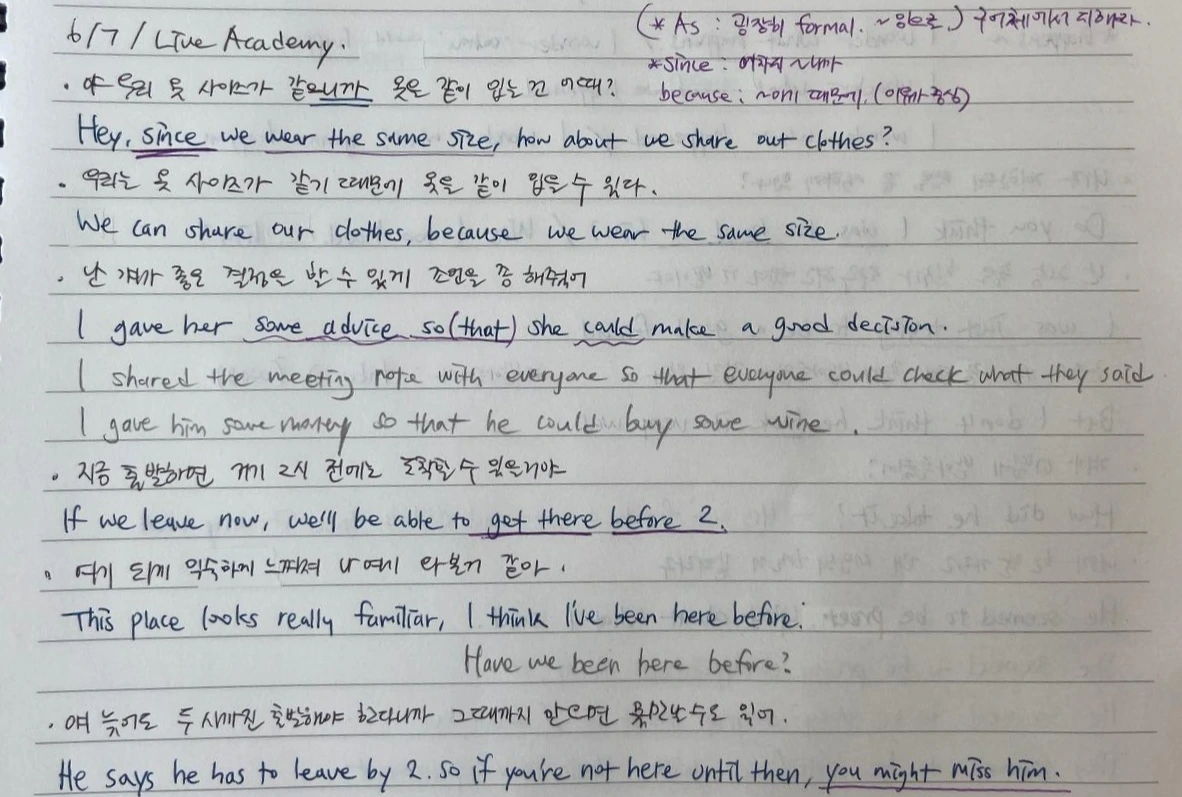 6/7/Live Academy.
(* As : 굉장히 formal. ~음으로.) 구어체에서 피해라.
* since : 어차피 ~니까
because : ~이기 때문에. (이유가 중심)
· 야 우리 옷 사이즈가 같으니까 옷을 같이 입는 건 어때?
Hey, since we wear the same size, how about we share out clothes?
· 우리는 옷 사이즈가 같기 때문에 옷을 같이 입을 수 있다.
We can share our clothes, because we wear the same size.
· 난 걔가 좋은 결정을 할 수 있게 조언을 좀 해줬어
I gave her some advice so (that) she could make a good decision.
I shared the meeting note with everyone so that everyone could check what they said
I gave him some money so that he could buy some wine.
· 지금 출발하면 거기 2시 전에도 도착할 수 있을거야
If we leave now, we'll be able to get there before 2.
· 여기 되게 익숙하게 느껴져 나 여기 와본거 같아.
This place looks really familiar, I think I've been here before.
Have we been here before?
· 얘 늦어도 두 시까진 출발해야 한다니까 그때까지 안오면 못만날 수도 있어.
He says he has to leave by 2. so if you're not here until then, you might miss him.